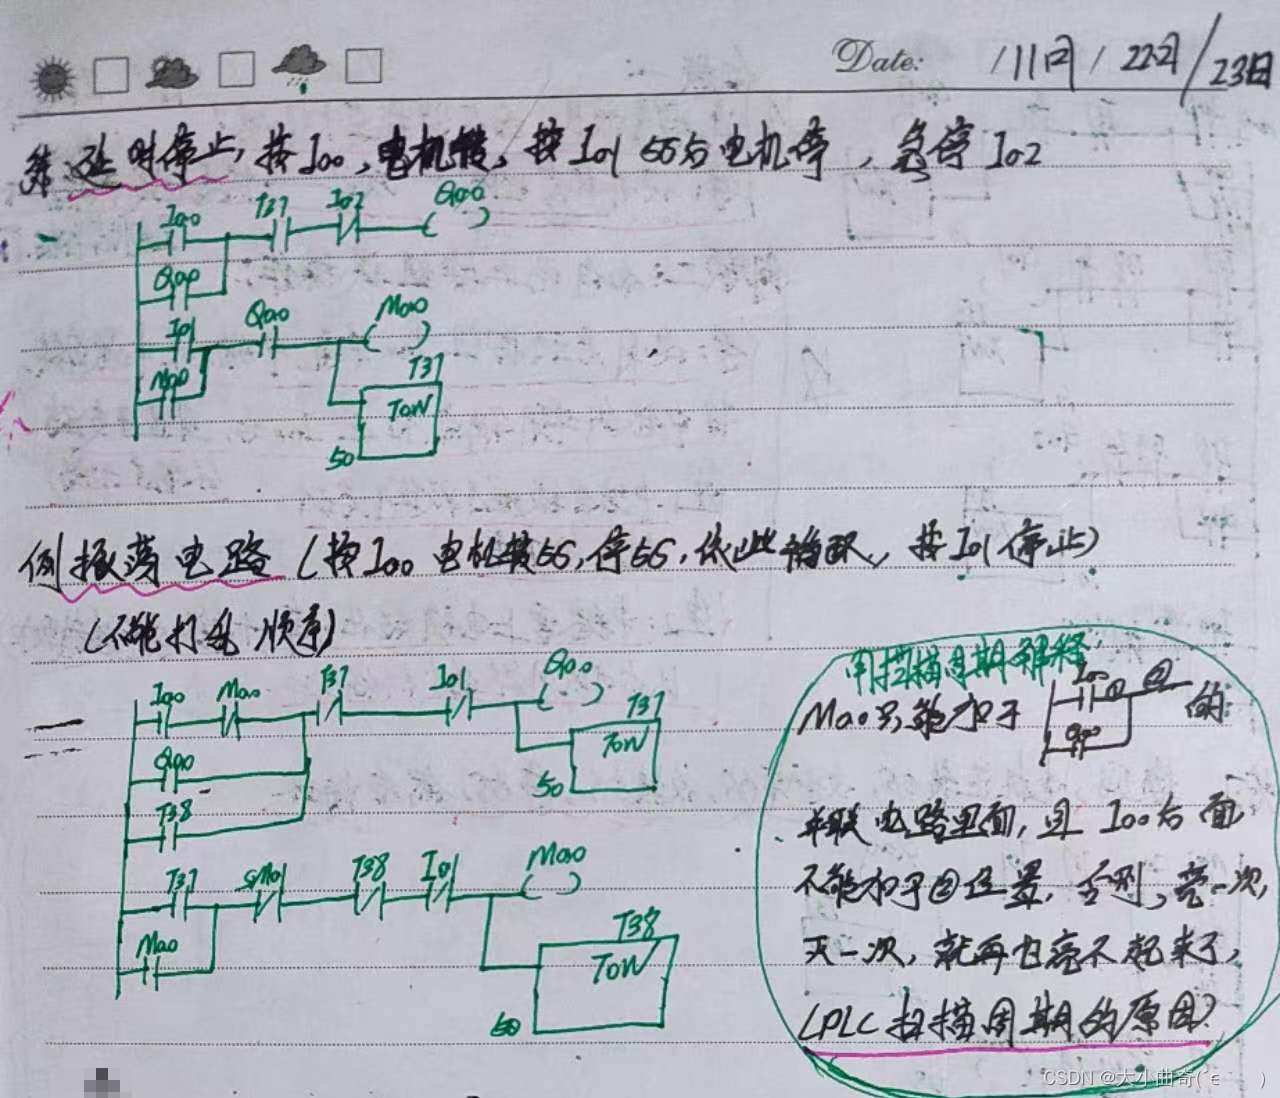 Date: 11月 22日/23日
延时停止,按I0.0,电机转,按I0.1 5S后电机停,急停I0.2
I0.0 T37 I0.2 Q0.0
Q0.0
I0.1 Q0.0 M0.0
M0.0 T37
TON
50
例振荡电路(按I0.0 电机转5S,停5S,依此循环,按I0.1停止)
(不能打乱顺序)
I0.0 M0.0 T37 I0.1 Q0.0
T37
TON
Q0.0
50
T38
T37 SM0.1 T38 I0.1 M0.0
M0.0
T38
TON
50
用扫描周期解释:
M0.0只能加于 I0.0 ① ② 的
Q0.0
并联电路里面,且I0.0后面
不能加于②位置,否则,亮一次,
灭一次,就再也亮不起来了,
(PLC扫描周期的原因)
CSDN @大小曲奇(